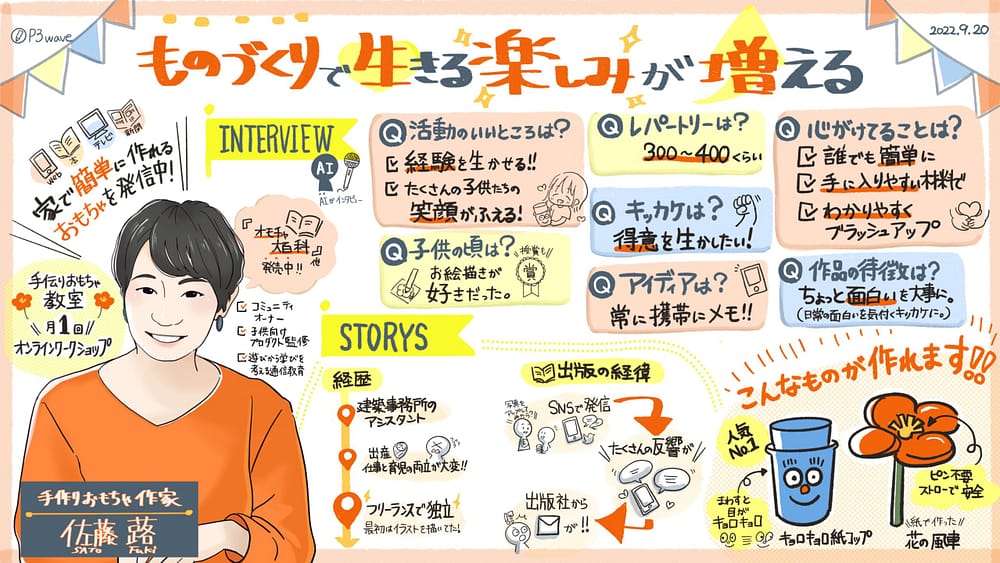 @P3wave
2022.9.20
ものづくりで生きる楽しみが増える
web
本
テレビ
新聞
家で簡単に作れる
おもちゃを発信中!
INTERVIEW
AI
AIがインタビュー
『オモチャ
大百科』他
発売中!!
手伝りおもちゃ
教室
月1回
オンラインワークショップ
コミュニティ
オーナー
子供向け
プロダクト監修
遊びから学びを
考える通信教育
手作りおもちゃ作家
佐藤 蕗
SATO Fuki
Q 活動のいいところは?
経験を生かせる!!
たくさんの子供たちの
笑顔がふえる!
Q 子供の頃は?
お絵描きが
好きだった。
授賞も
賞
Q レパートリーは?
300~400くらい
Q キッカケは?
得意を生かしたい!
Q アイディアは?
常に携帯にメモ!!
Q 心がけてることは?
誰でも簡単に
手に入りやすい材料で
わかりやすく
ブラッシュアップ
Q 作品の特徴は?
ちょっと面白いを大事に。
(日常の面白いを気付くキッカケに。)
STORYS
経歴
建築事務所の
アシスタント
出産
仕事と育児の両立が大変!!
フリーランスで独立
最初はイラストを描いてた!
出版の経緯
SNSで発信
たくさんの反響が
出版社から
が!!
こんなものが作れます!!
人気
No.1
まわすと
目が
キョロキョロ
キョロキョロ紙コップ
ピン不要
ストローで安全
紙で作った
花の風車